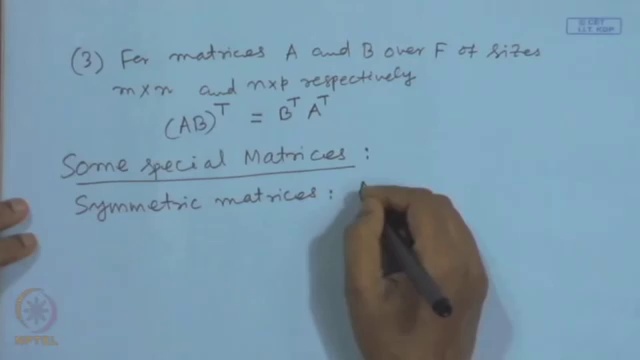 © CET
I.I.T. KGP
(3) For matrices A and B over F of sizes
m×n and n×p respectively
(AB)^T = B^T A^T
Some special Matrices :
Symmetric matrices :
NPTEL